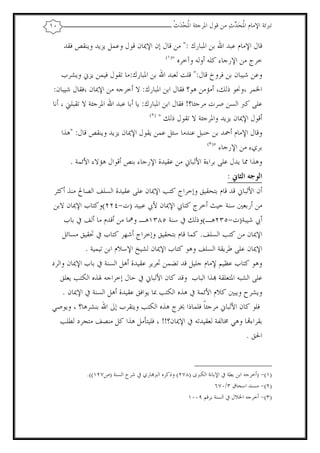 تبرئة الإمام المُحَدِّث من قول المرجئة المُحْدَث
١٠
قال الإمام عبد الله بن المبارك :" من قال إن الإيمان قول وعمل يزيد وينقص فقد
خرج من الإرجاء كله أوله وآخره "(١)
وعن شيبان بن فروخ قال:" قلت لعبد الله بن المبارك:ما تقول فيمن يزني ويشرب
الخمر ,ونحو ذلك، أمؤمن هو؟ فقال ابن المبارك: لا أخرجه من الإيمان ,فقال شيبان:
على كبر السن صرت مرجئا؟! فقال ابن المبارك: يا أبا عبد الله المرجئة لا تقبلني ، أنا
أقول الإيمان يزيد والمرجئة لا تقول ذلك "(٢)
وقال الإمام أحمد بن حنبل عندما سئل عمن يقول الإيمان يزيد وينقص قال: "هذا
بريء من الإرجاء "(٣)
وهذا مما يدل على براءة الألباني من عقيدة الإرجاء بنص أقوال هؤلاء الأئمة .
الوجه الثاني :
أن الألباني قد قام بتحقيق وإخراج كتب الإيمان على عقيدة السلف الصالح منذ أكثر
من أربعين سنة حيث أخرج كتابي الإيمان لأبي عبيد (ت-٢٢٤)وكتاب الإيمان لابن
أبي شيبة(ت-٢٣٥هـ)وذلك في سنة ١٣٨٥هـ وهما من أقدم ما ألف في باب
الإيمان من كتب السلف. كما قام بتحقيق وإخراج أشهر كتاب في تحقيق مسائل
الإيمان على طريقة السلف وهو كتاب الإيمان لشيخ الإسلام ابن تيمية .
وهو كتاب عظيم لإمام جليل قد تضمن تحرير عقيدة أهل السنة في باب الإيمان والرد
على الشبه المتعلقة بهذا الباب وقد كان الألباني في حال إخراجه لهذه الكتب يعلق
ويشرح ويبين كلام الأئمة في هذه الكتب بما يوافق عقيدة أهل السنة في الإيمان .
فلو كان الألباني مرجئاً فلماذا يخرج هذه الكتب ويتقرب إلى الله بنشرها؟ ، ويوصي
بقراءتها وهي مخالفة لعقيدته في الإيمان؟!! ، فليتأمل هذا كل منصف متجرد لطلب
الحق .
(١)- (أخرجه ابن بطة في الإبانة الكبرى (٢٧٨) وذكره البربهاري في شرح السنة (ص١٢٧)).
(٢)- مسند اسحاق ٣/ ٦٧٠
(٣)- أخرجه الخلال في السنة برقم ١٠٠٩